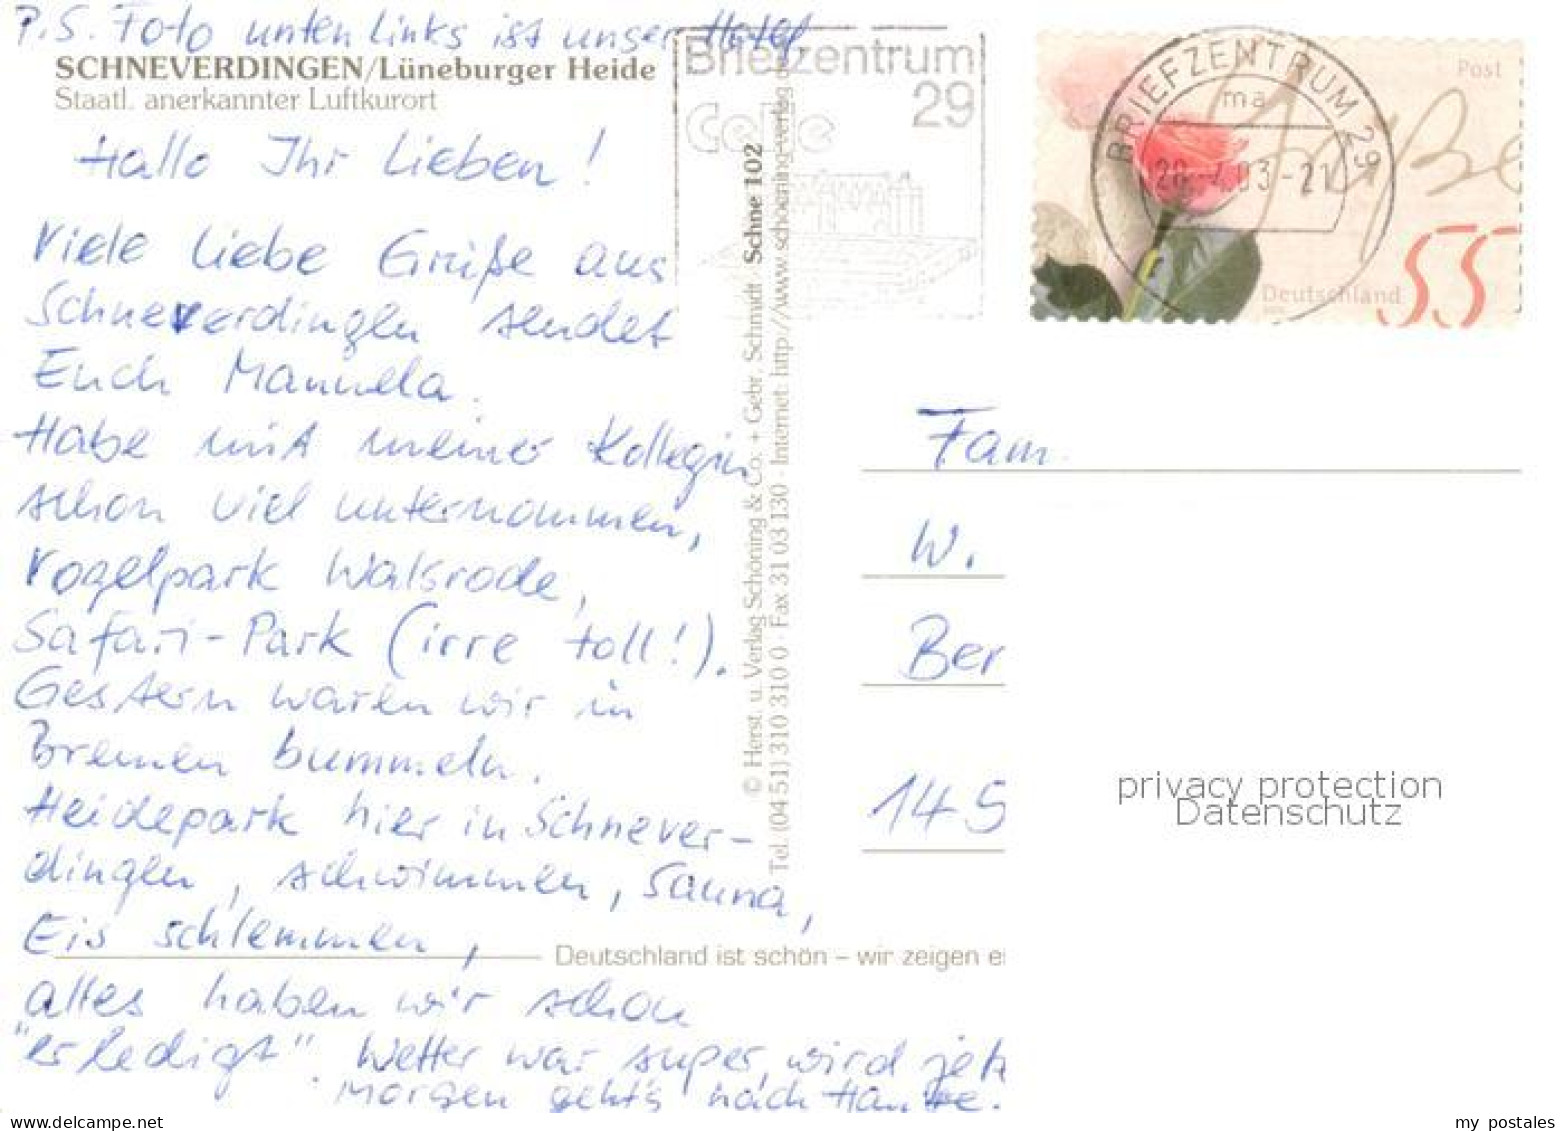 P.S. Foto unten links ist unser Hotel
SCHNEVERDINGEN/Lüneburger Heide
Staatl. anerkannter Luftkurort
Hallo Ihr Lieben!
Viele liebe Grüße aus
Schneverdingen sendet
Euch Manuela.
Habe mit meiner Kollegin
schon viel unternommen,
Vogelpark Walsrode,
Safari-Park (irre toll!).
Gestern waren wir in
Bremen bummeln.
Heidepark hier in Schnever-
dingen, schwimmen, Sauna,
Eis schlemmen,
alles haben wir schon
"erledigt". Wetter war super, wird jetz
Morgen geht's nach Hause.
Deutschland ist schön – wir zeigen e
© Herst. u. Verlag Schöning & Co. + Gebr. Schmidt · Schne 102
Tel. (04 51) 310 310 0 · Fax 31 03 130 · Internet: http://www.schoening-verlag
Briefzentrum
29
Celle
BRIEFZENTRUM 29
ma
03-21
Post
Grüße
Deutschland
55
Fam.
W.
Ber
145
privacy protection
Datenschutz
www.delcampe.net
my postales